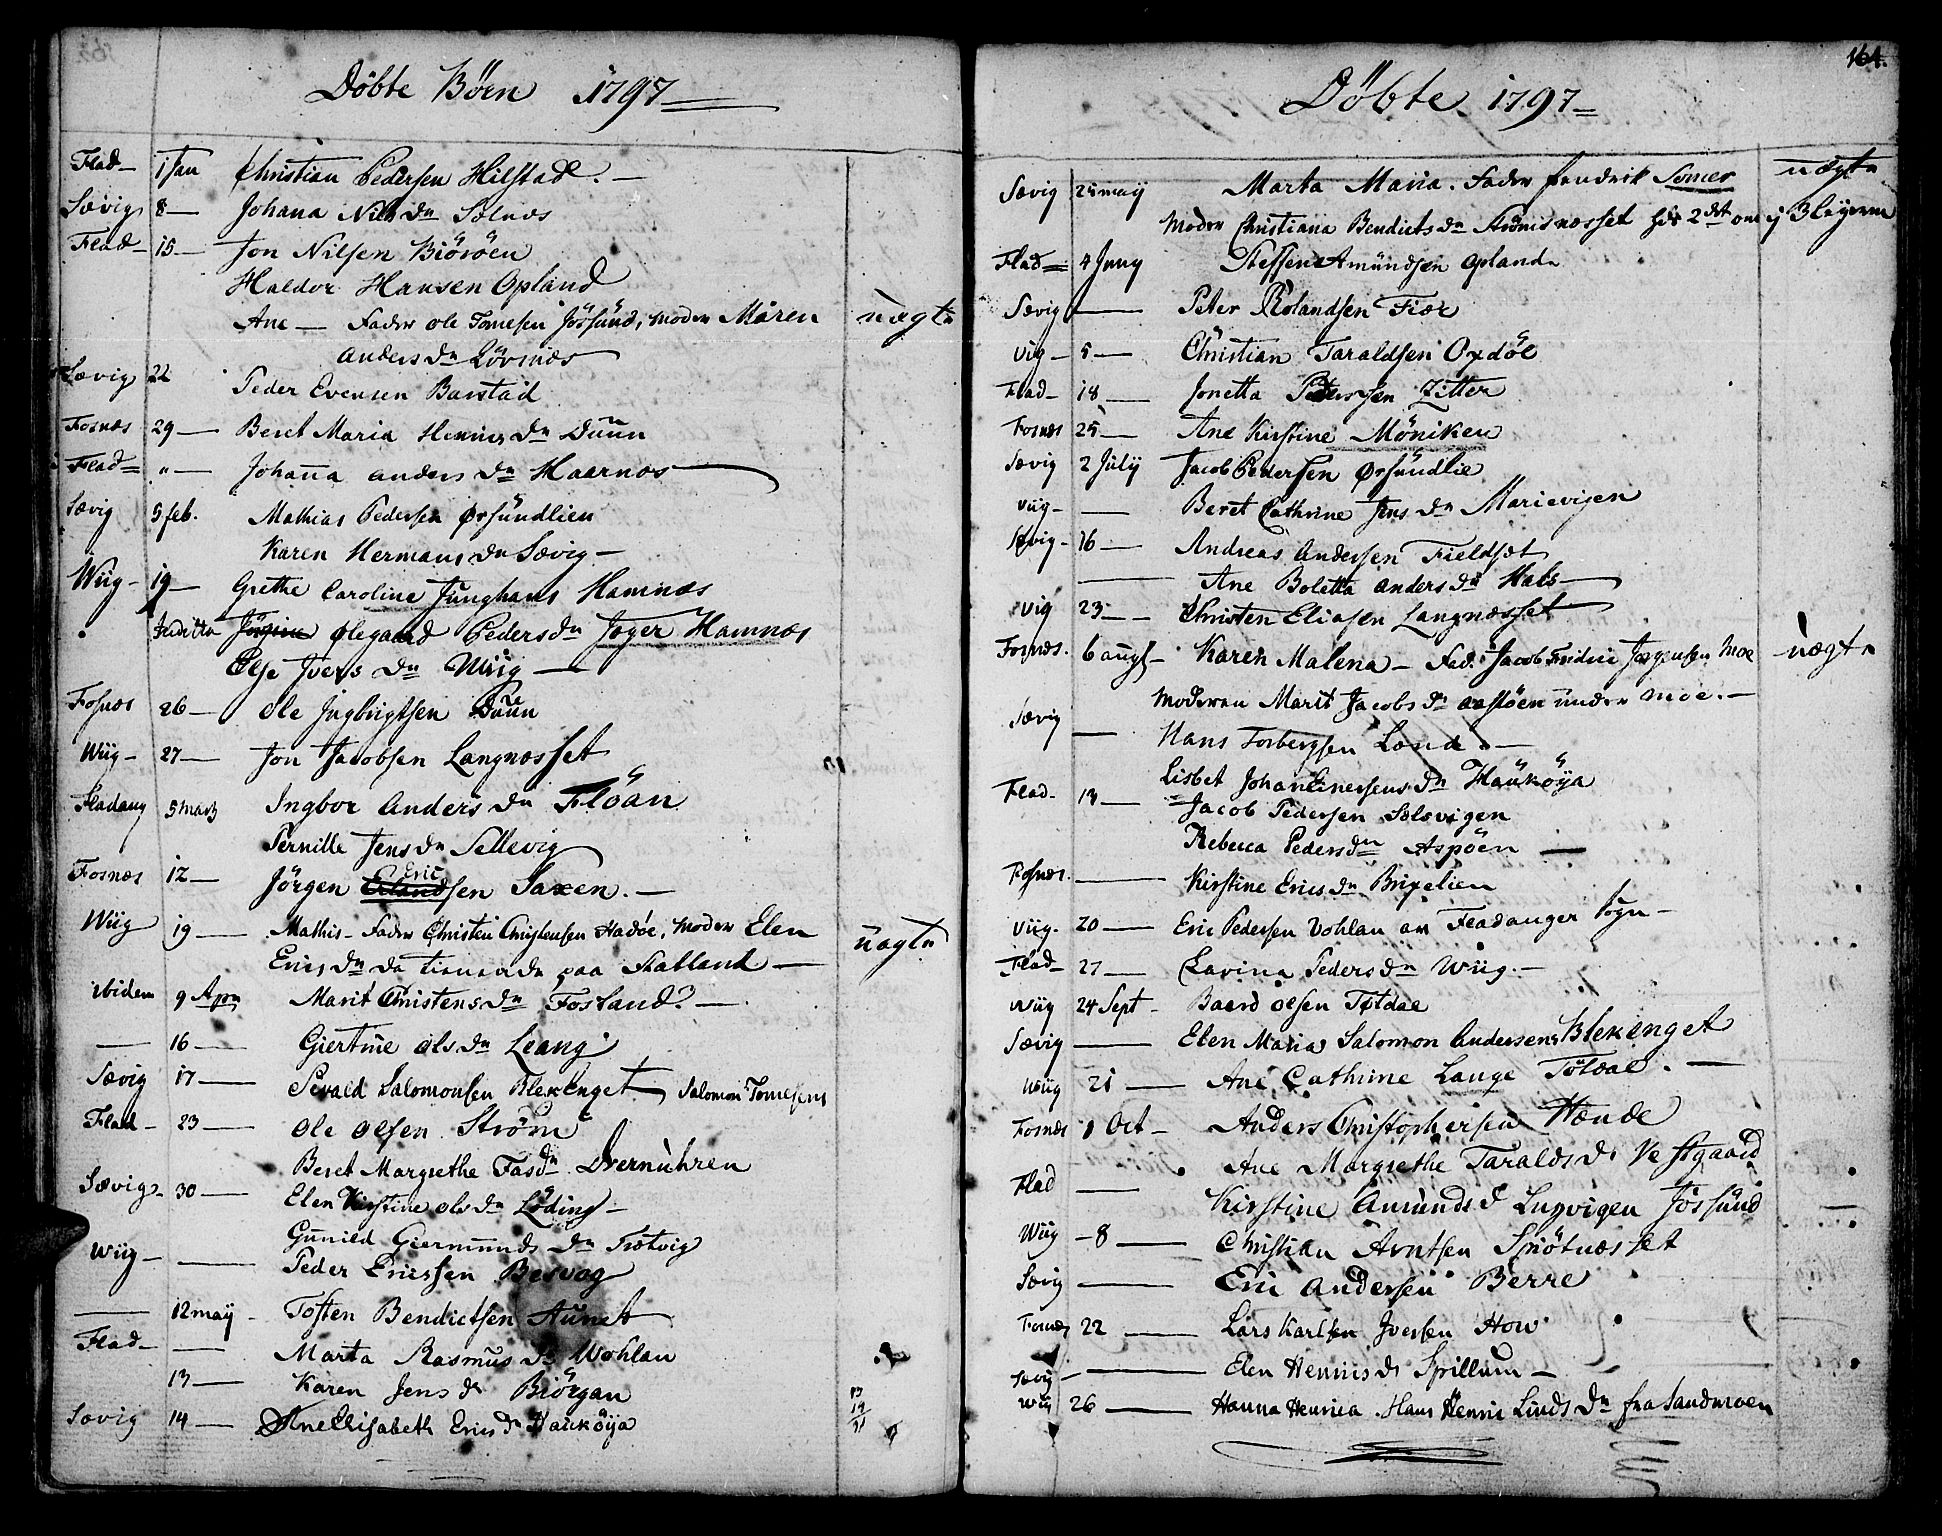 Döbte Börn 1797
Flad- 1 Jan Christian Pedersen Hilstad.
Sævig 8 Johana Nils dn Solnæs
Flad 15 Jon Nilsen Biöröen
Haldor Hansen Opland
Ane Fader Ole Tomesen Jössund, Moder Maren uægte
Anders dn Lövnæs
Sævig 22 Peder Evensen Barstad
Fosnæs 29 Beret Maria Hennings dn Duun
Flad " Johana Anders dn Haernæs
Sævig 5 feb. Mathias Pedersen Örsundlien
Karen Hermans dn Sævig
Wiig 19 Grethe Caroline Junghans Hamnæs
Inditta Ölegaard Pedersdn Joger Hamnæs
Else Ivers dn Wiig
Fosnæs 26 Ole Ingbrigtsen Duun
Wiig 27 Jon Jacobsen Langnæsset
Fladang 5 Marts Ingbor Anders dn Flöan
Pernille Jens dn Sellevig
Fosnæs 12 Jörgen Eric Erlandsen Saxen.
Wiig 19 Mathis- Fader Christen Christensen Hadöe, Moder Elen uægte
Erics dn paa Statland
ibidem 9 Apr Marit Christens dn Fosland?
16 Giertrue Ols dn Leang
Sævig 17 Sevald Salomonsen Blekenget Salomon Tomesens
Flad 23 Ole Olsen Ström
Beret Margrethe Fasdn
Sævig 30 Elen Kirstine Ols dn Löding
Gunild Giermunds dn Tratvig
Wiig Peder Ericssen Besvog
12 may Tosten Bendictsen Aunet
Flad Marta Rasmus dn Wohlan
13 Karen Jens dn Biörgan
Sævig 14 Ane Elisabeth Erics dn Hauköya
164.
Döbte 1797
Sævig 25 may Marta Maria. Fader fendrik Somer uægte
Moder Christiana Bendicts dn Strömsnæsset
Flad 4 Juny Steffen Amundsen Opland
Sævig Peter Rolandsen Fiær
Vig 5 Christian Taraldsen Oxdöl
Flad 18 Jonetta Pederssen Zitter
Fosnæs 25 Ane Kirstine Möniken
Sævig 2 July Jacob Pedersen Örsundlie
Viig Beret Cathrine Jens dn Marievigen
Sævig 16 Andreas Andersen Fieldset
Ane Boletta Anders dn Hals
Vig 23 Christen Eliasen Langnæsset
Fosnæs. 6 augl Karen Malena - Fad. Jacob Fridric Jörgensen Moe uægte
Moderen Marit Jacobs dn Aspöen under Moe.
Sævig Hans Torbergsen Lænd.
Lisbet Johan Einersens dn Hauköya
Flad 13 Jacob Pedersen Solsvigen
Rebecca Pedersdn Aspöen
Fosnæs. Kirstine Erics dn Brixelien
Viig 20 Eric Pedersen Vohlan av Fladanger Sogn
Flad 27 Lavina Peders dn Wiig.
Wiig 24 Sept Baard Olsen Tötdal
Sævig Elen Maria Salomon Andersens Blekenget
Wiig 21 Ane Cathrine Lange Tötdal.
Fosnæs 1 Oct Anders Christophersen Hænde
Ane Margrethe Taralds d. Vestgaard
Flad Kirstine Amunds d Luxvigen Jössund
Wiig 8 Christian Arntsen Spiötnæsset
Sævig Eric Andersen Berre
Fosnæs 22 Lars Karlsen Iversen How
Sævig Elen Hennings d. Spillum
Wiig 26 Hanna Henrica. Hans Henric Linds dn fra Sandmoen